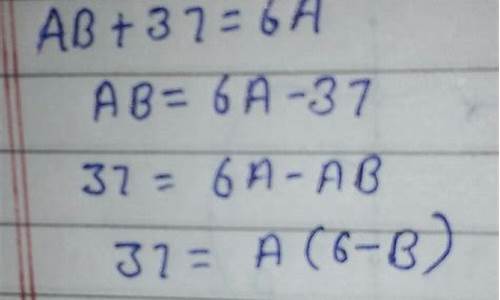 AB + 37 = 6A
AB = 6A - 37
37 = 6A - AB
37 = A (6 - B)